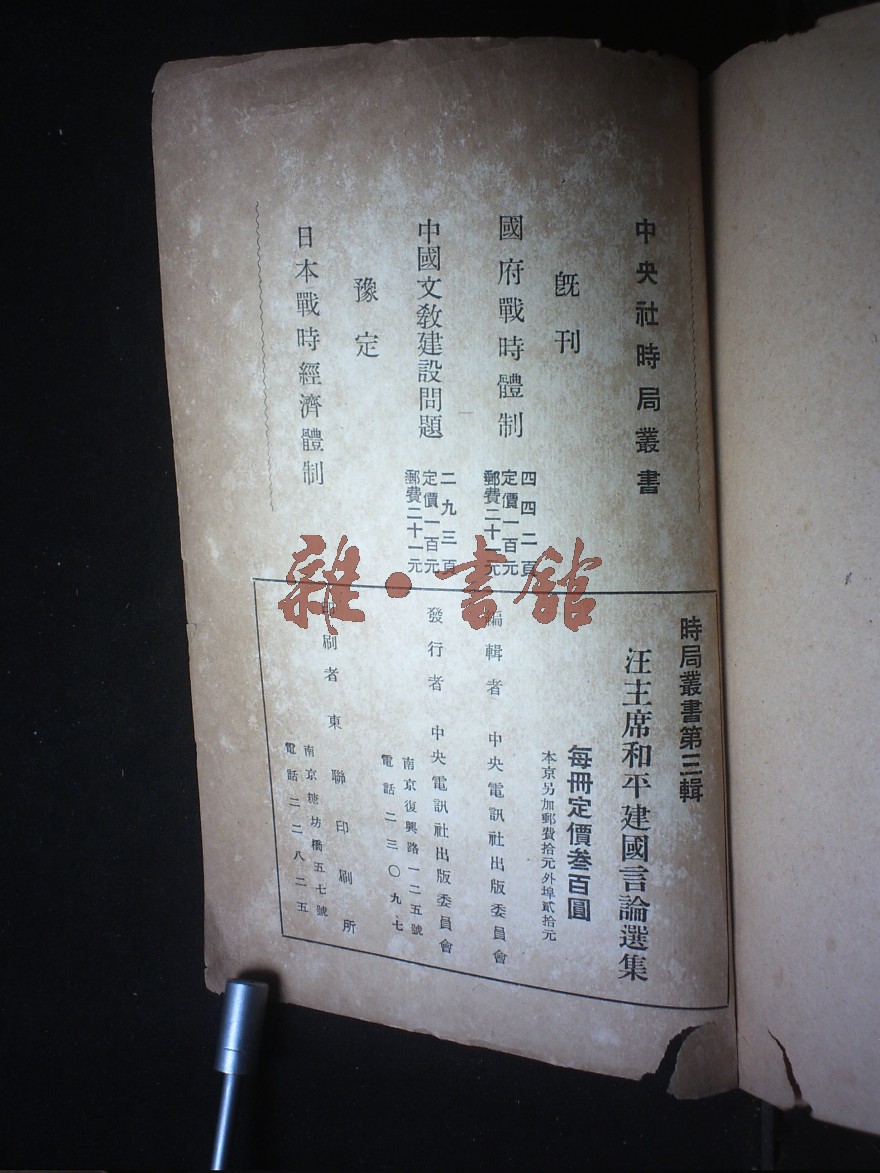 中央社時局叢書
既刊
國府戰時體制
四四二頁
定價一百元
郵費二十一元
中國文教建設問題
二九三頁
定價一百元
郵費二十一元
豫定
日本戰時經濟體制
時局叢書第三輯
汪主席和平建國言論選集
每冊定價叁百圓
本京另加郵費拾元外埠貳拾元
編輯者 中央電訊社出版委員會
發行者 中央電訊社出版委員會
南京復興路一二五號
電話二三〇九七
印刷者 東聯印刷所
南京糖坊橋五七號
電話二二八二五
雜·書館